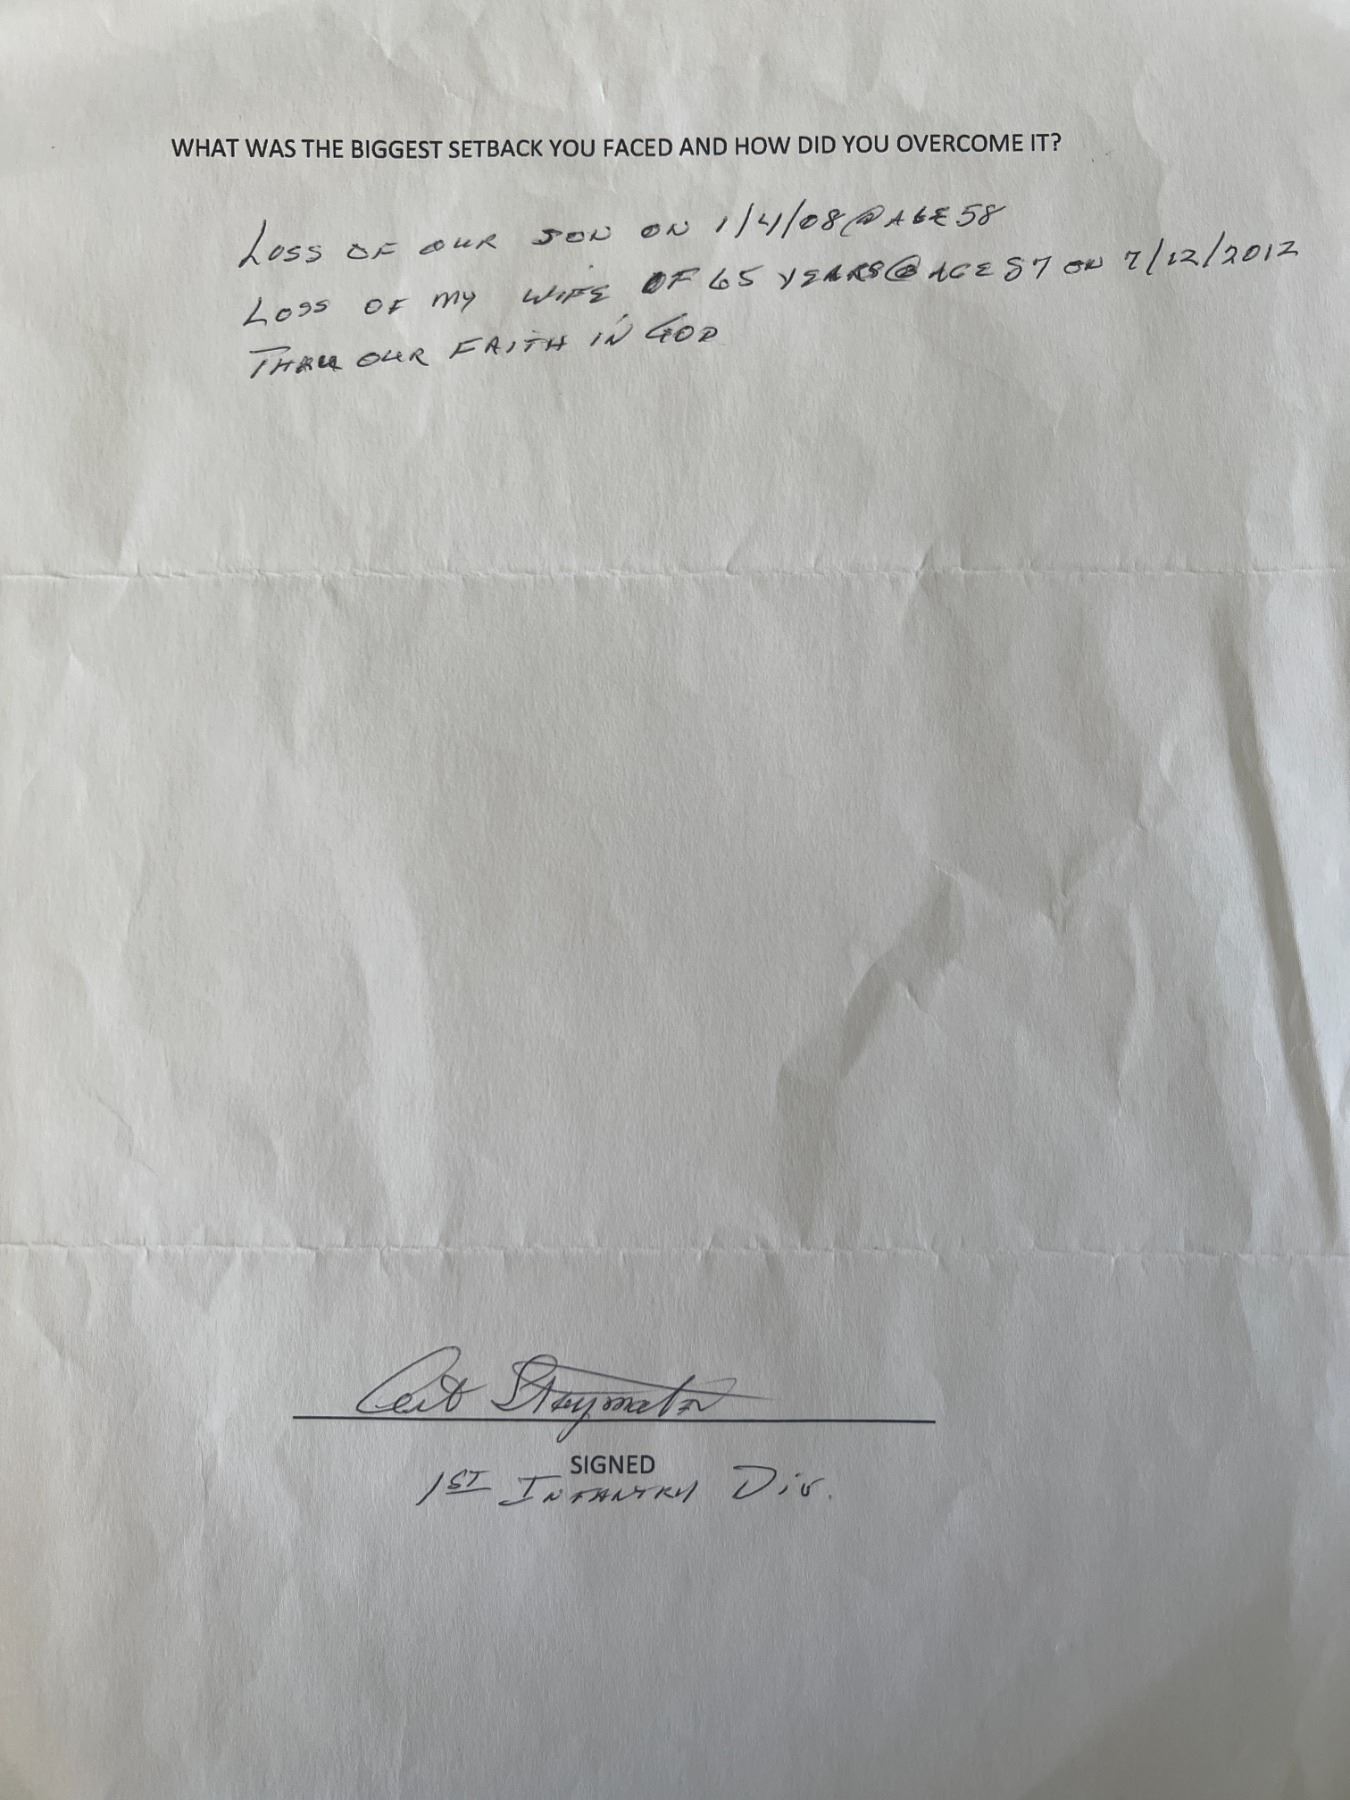 WHAT WAS THE BIGGEST SETBACK YOU FACED AND HOW DID YOU OVERCOME IT?
LOSS OF OUR SON ON 1/4/08 @ AGE 58
LOSS OF MY WIFE OF 65 YEARS @ AGE 87 ON 7/12/2012
THRU OUR FAITH IN GOD
Staymates
SIGNED
1ST INFANTRY DIV.